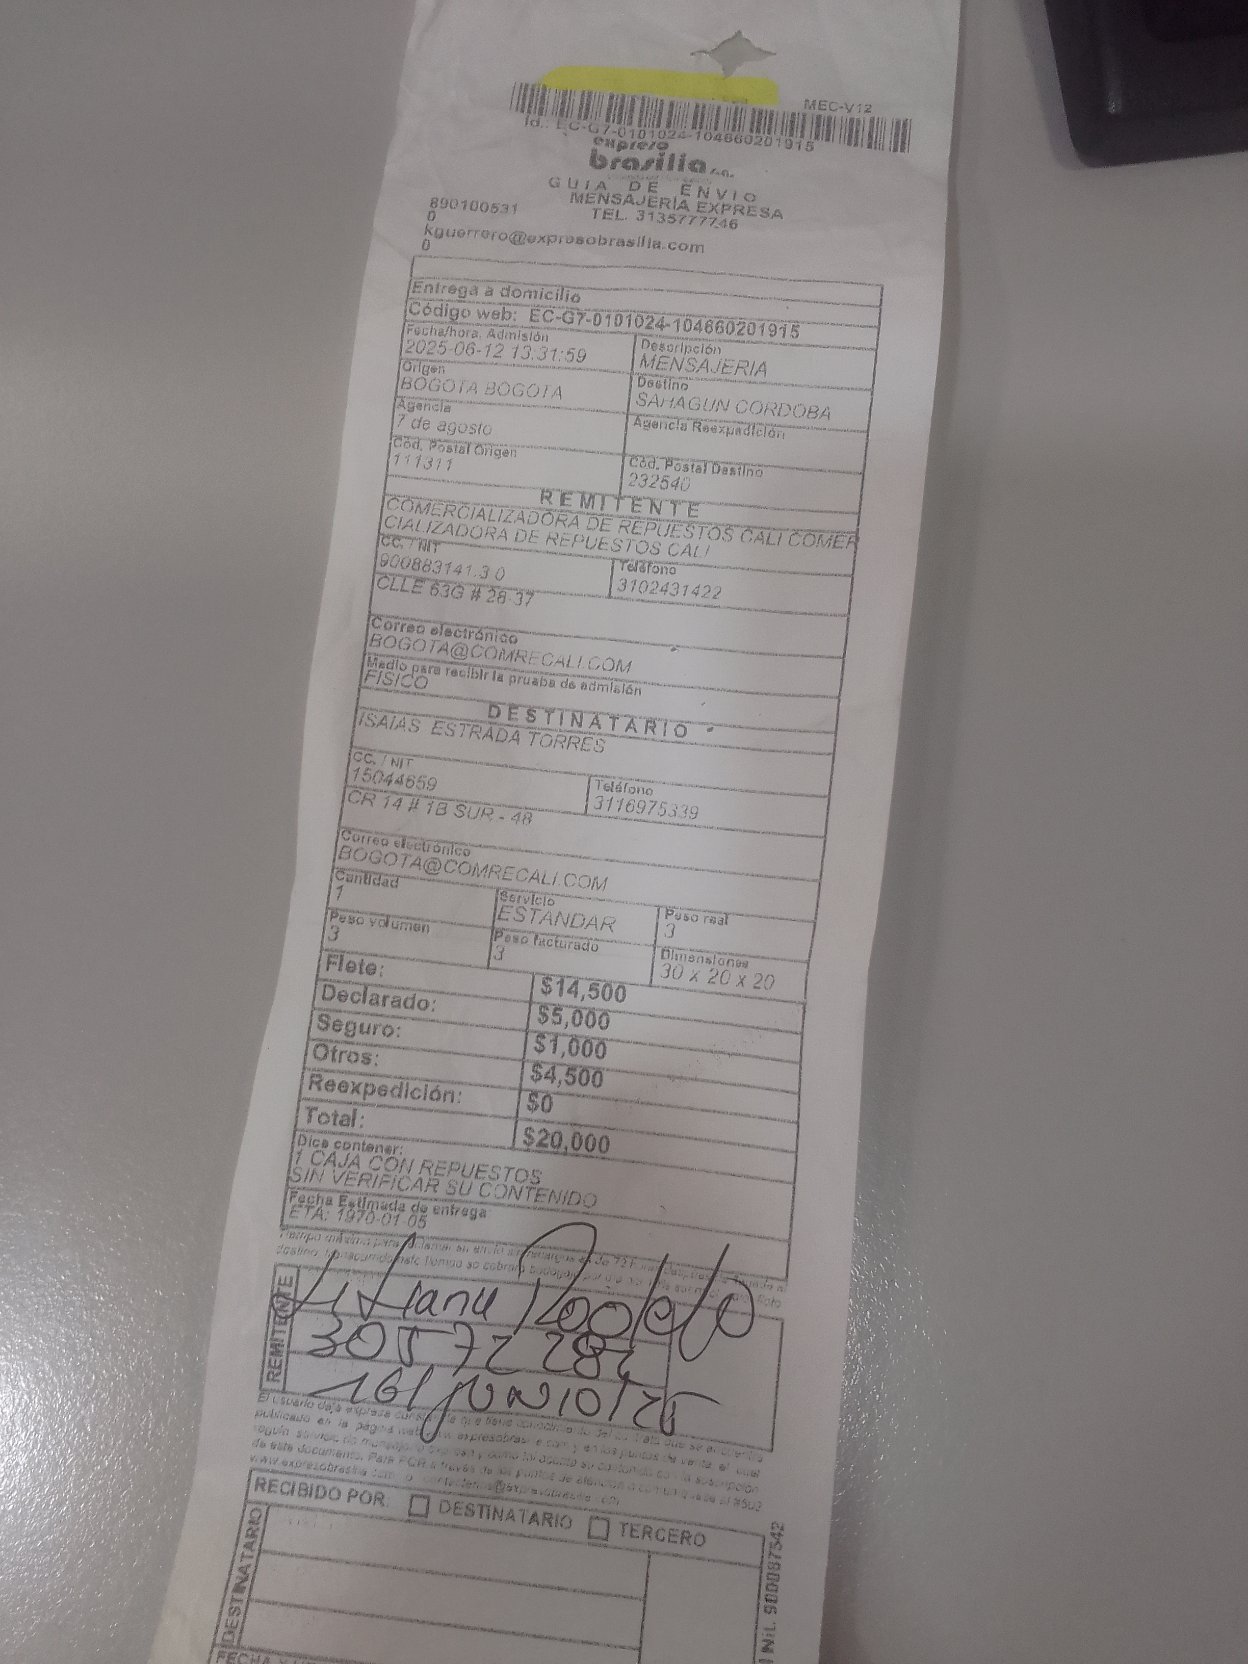 MEC-V12
Id.: EC-G7-0101024-104660201915
expreso
brasilia s.a.
GUIA DE ENVIO
MENSAJERIA EXPRESA
TEL. 3135777746
890100531
0
kguerrero@expresobrasilia.com
0
Entrega a domicilio
Código web: EC-G7-0101024-104660201915
Fecha/hora. Admisión
2025-06-12 13:31:59
Descripción
MENSAJERIA
Origen
BOGOTA BOGOTA
Destino
SAHAGUN CORDOBA
Agencia
7 de agosto
Agencia Reexpedición
Cód. Postal Origen
111311
Cód. Postal Destino
232540
REMITENTE
COMERCIALIZADORA DE REPUESTOS CALI COMER
CIALIZADORA DE REPUESTOS CALI
CC. / NIT
900883141.3 0
Teléfono
3102431422
CLLE 63G # 28-37
Correo electrónico
BOGOTA@COMRECALI.COM
Medio para recibir la prueba de admisión
FISICO
DESTINATARIO
ISAIAS ESTRADA TORRES
CC. / NIT
15044659
Teléfono
3116975339
CR 14 # 1B SUR - 48
Correo electrónico
BOGOTA@COMRECALI.COM
Cantidad
1
Servicio
ESTANDAR
Peso real
3
Peso volumen
3
Peso facturado
3
Dimensiones
30 x 20 x 20
Flete: $14,500
Declarado: $5,000
Seguro: $1,000
Otros: $4,500
Reexpedición: $0
Total: $20,000
Dice contener:
1 CAJA CON REPUESTOS
SIN VERIFICAR SU CONTENIDO
Fecha Estimada de entrega
ETA: 1970-01-05
REMITENTE
30572282
16/JUNIO/25
RECIBIDO POR: DESTINATARIO TERCERO
DESTINATARIO
Nit. 900087542